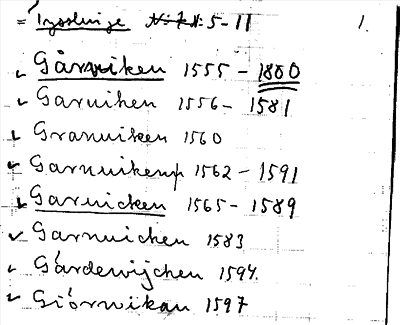 = N: 5-11 1.
Gårviken 1555 - 1800
Garviken 1556 - 1581
Granuiken 1560
Garnuikenn 1562 - 1591
Garuicken 1565 - 1589
Garnuichen 1583
Gårdewijchen 1594.
Giörwikan 1597